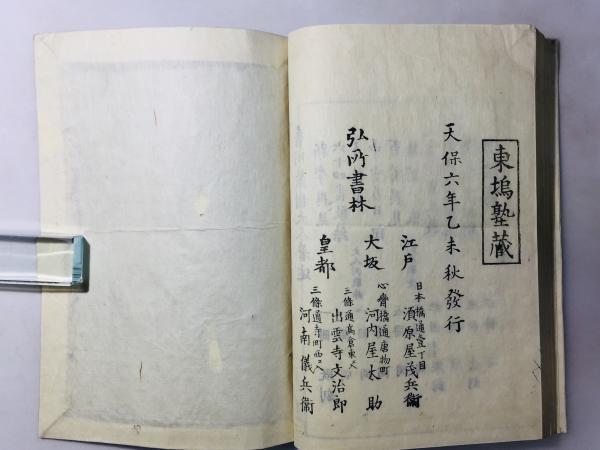 東塢塾藏
天保六年乙未秋發行
弘所書林
江戸
日本橋通壹丁目
須原屋茂兵衞
大坂
心齋橋通唐物町
河内屋太助
皇都
三條通高倉東入
出雲寺文治郎
三條通寺町西入
河南儀兵衞